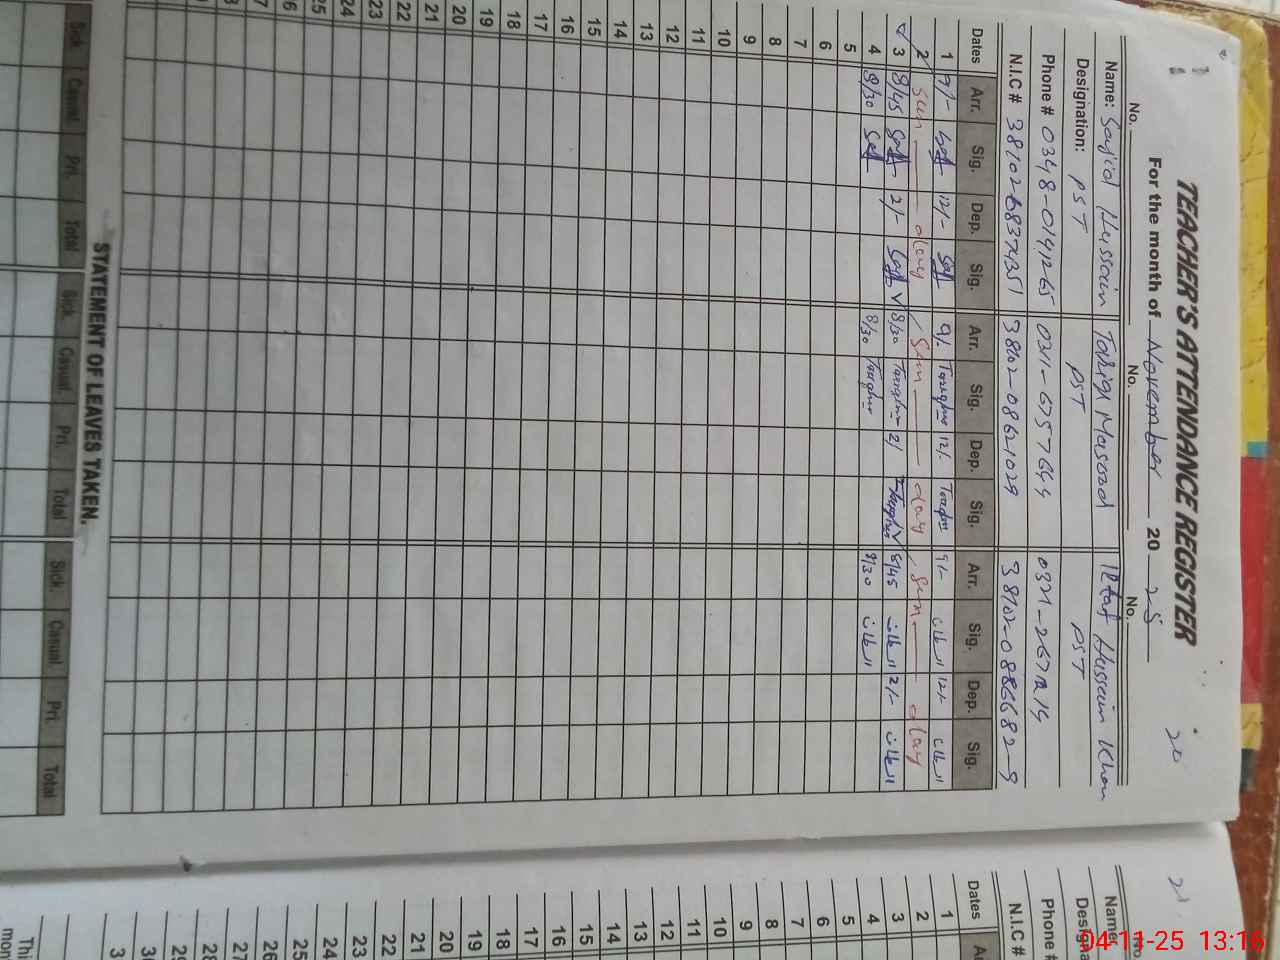 20
TEACHER'S ATTENDANCE REGISTER
For the month of November 20 25
No. No. No.
Name: Sajid Hussain Tariq Masood Iltaf Hussain Khan
Designation: PST PST PST
Phone # 0348-0141265 0311-6757644
N.I.C # 38102-08621029 38102-0886682-9
Dates Arr. Sig. Dep. Sig. Arr. Sig. Dep. Sig. Arr. Sig. Dep. Sig.
1 9/- 12/- 9/- 12/- 9/- 12/-
2 Sun day Sun day Sun day
3 8/45 2/- 8/30 2/ 8/45 2/-
4 8/30 8/30 8/30
5
6
7
8
9
10
11
12
13
14
15
16
17
18
19
20
21
22
23
24
25
26
27
28
STATEMENT OF LEAVES TAKEN.
Sick Casual Pri. Total Sick. Casual. Pri. Total Sick. Casual. Pri. Total
21
No
Name:
Designa
Phone #
N.I.C #
Dates
1
2
3
4
5
6
7
8
9
10
11
12
13
14
15
16
17
18
19
20
21
22
23
24
25
26
27
28
29
30
3
Thi
mon
04-11-25 13:16